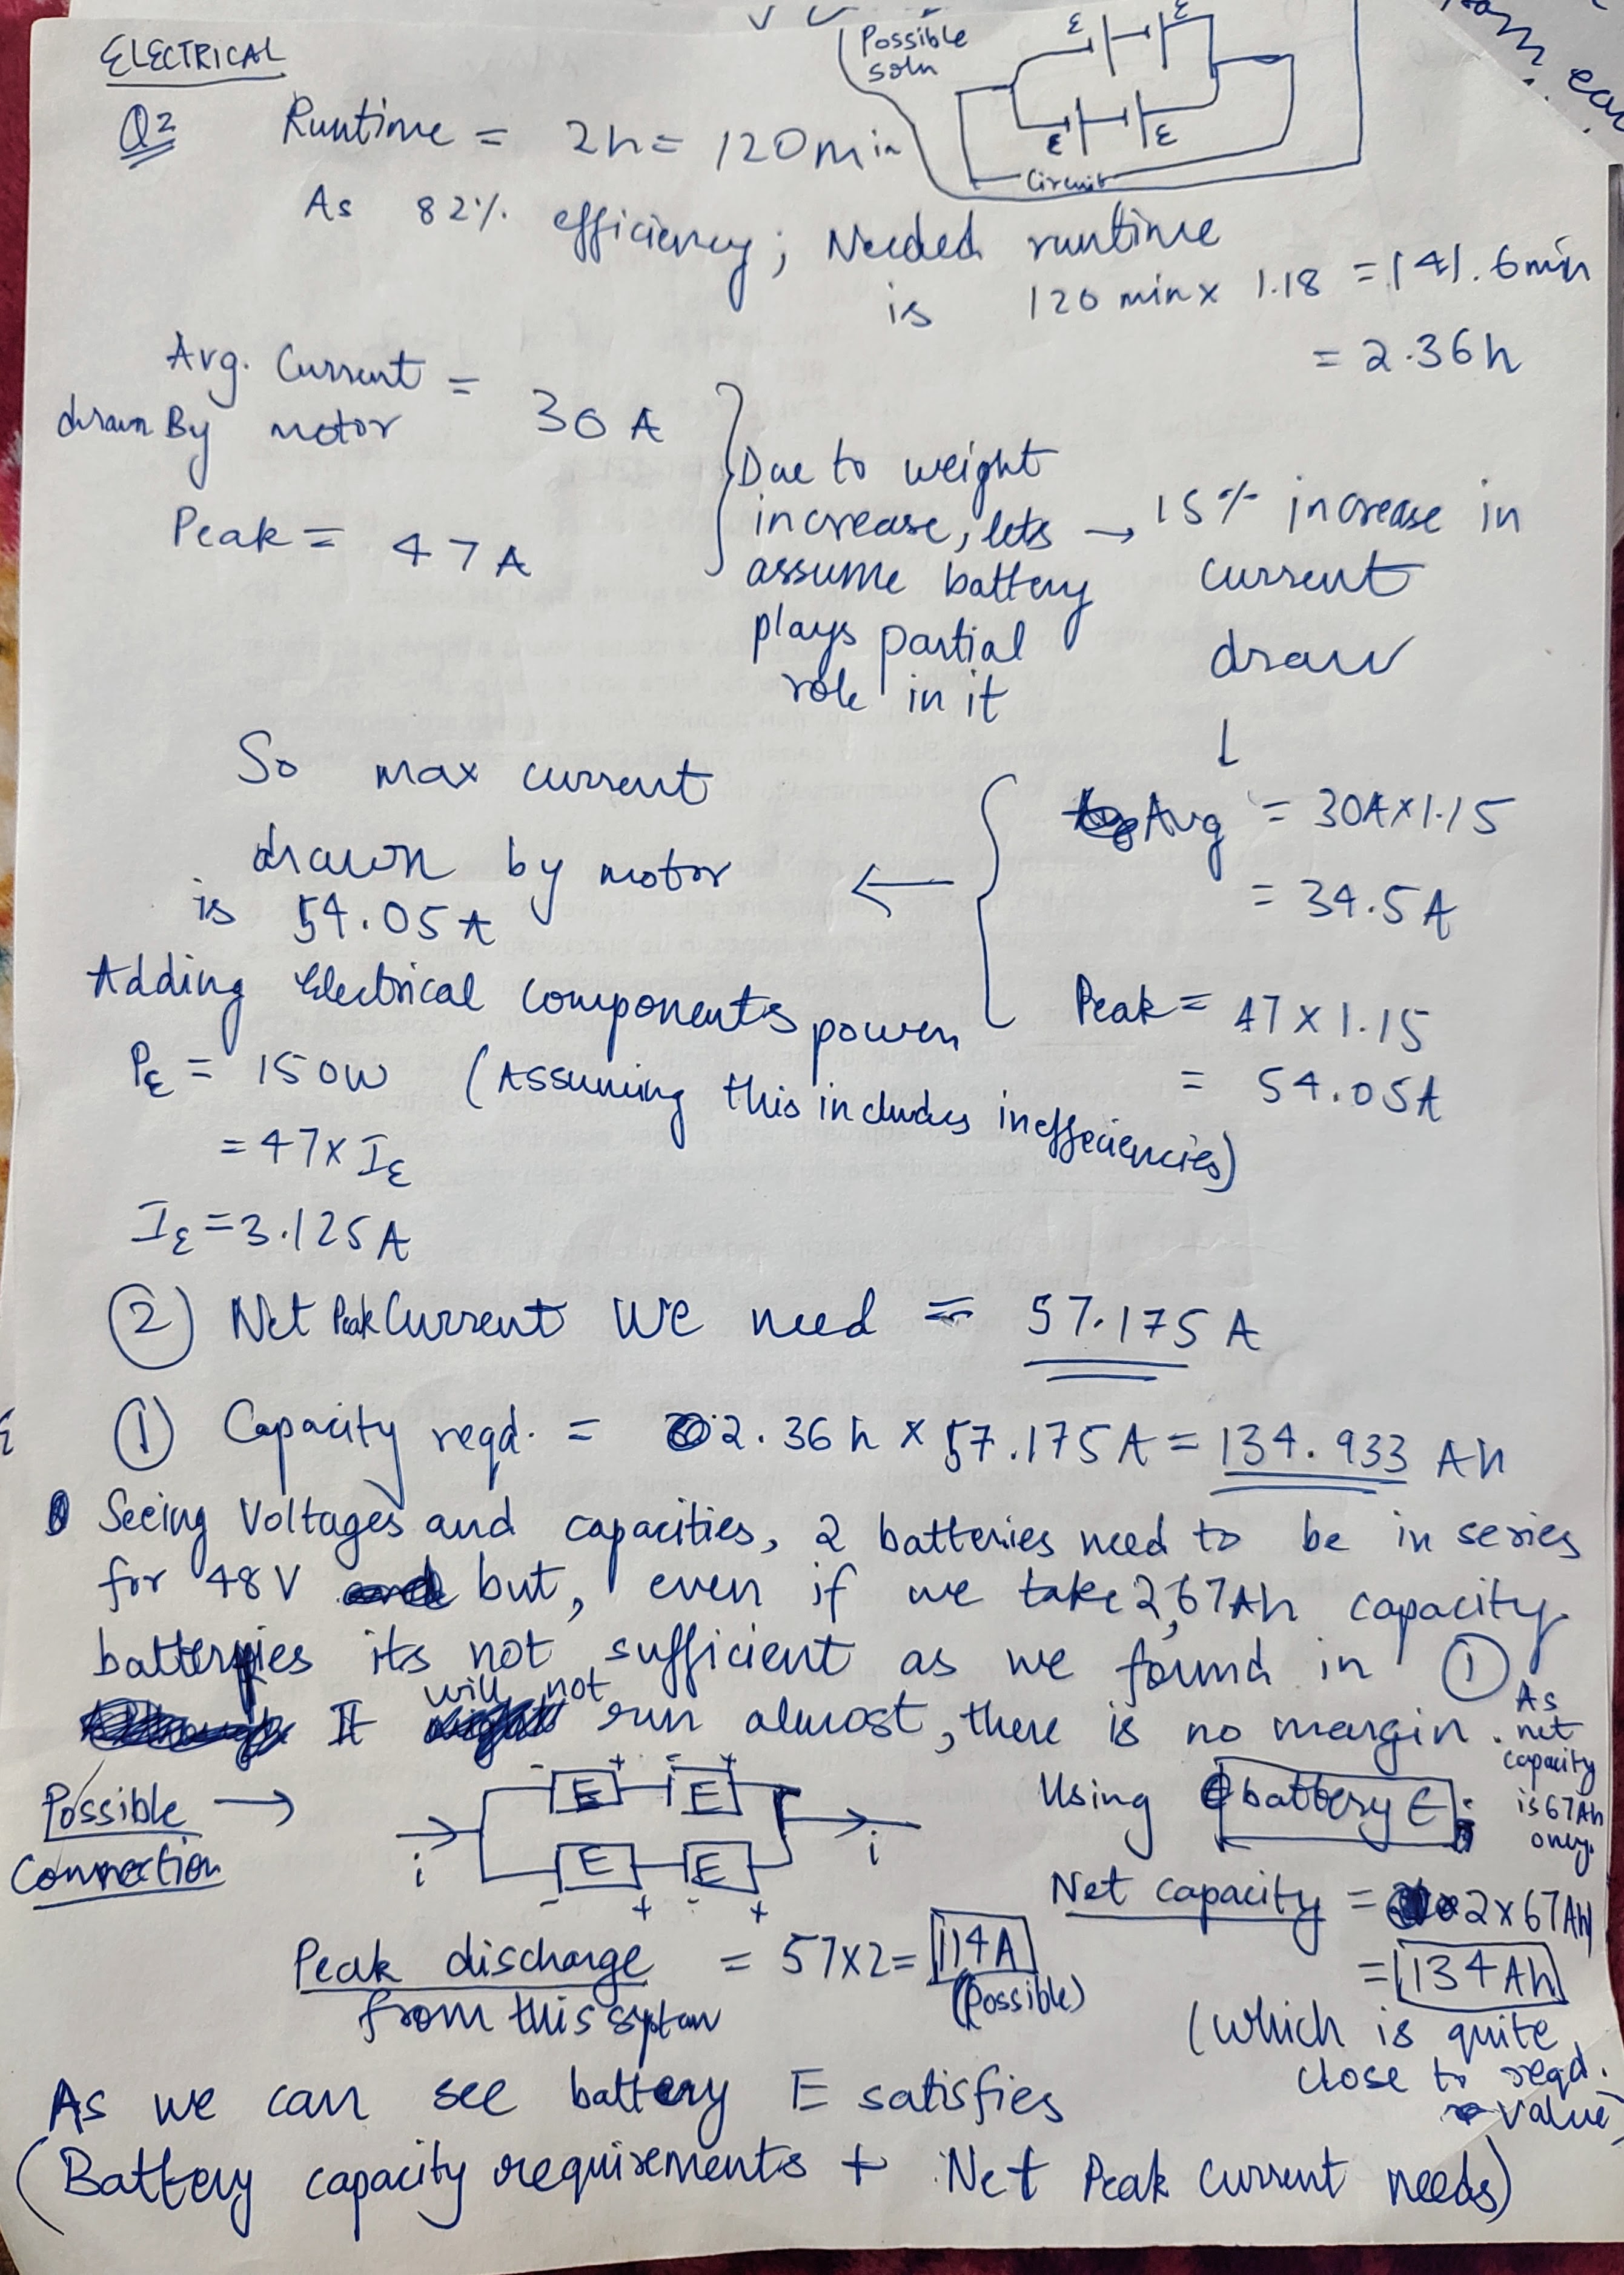 ELECTRICAL
Possible
soln
ε ε
ε ε
Circuit
Q2 Runtime = 2h = 120 min
As 82% efficiency; Needed runtime
is 120 min x 1.18 = 141.6 min
= 2.36h
Avg. Current = 30 A
drawn By motor
Peak = 47 A
Due to weight
increase, lets → 15% increase in
assume battery current
plays partial draw
role in it
↓
Avg = 30A x 1.15
= 34.5 A
Peak = 47 x 1.15
= 54.05A
So max current
drawn by motor ←
is 54.05 A
Adding Electrical components power
PE = 150W (Assuming this includes ineffeciencies)
= 47 x IE
IE = 3.125 A
② Net Peak Current we need = 57.175 A
① Capacity reqd. = 2.36 h x 57.175 A = 134.933 Ah
Seeing Voltages and capacities, 2 batteries need to be in series
for 48V but, even if we take 2, 67Ah capacity
batteries its not sufficient as we found in ①
It will not run almost, there is no margin. As
net
capacity
is 67Ah
only.
Possible →
Connection
- E + - E +
i i
- E + - E +
Using battery E;
Net capacity = 2 x 67Ah
= 134 Ah
(which is quite
close to reqd.
value)
Peak discharge = 57 x 2 = 114 A
from this system (Possible)
As we can see battery E satisfies
(Battery capacity requirements + Net Peak Current needs)